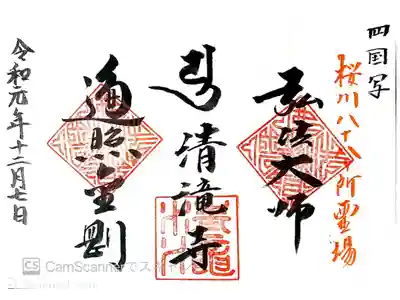 四国写
桜川八十八所霊場
弘法大師
清滝寺
遍照金剛
令和元年十二月七日
CS CamScannerでス